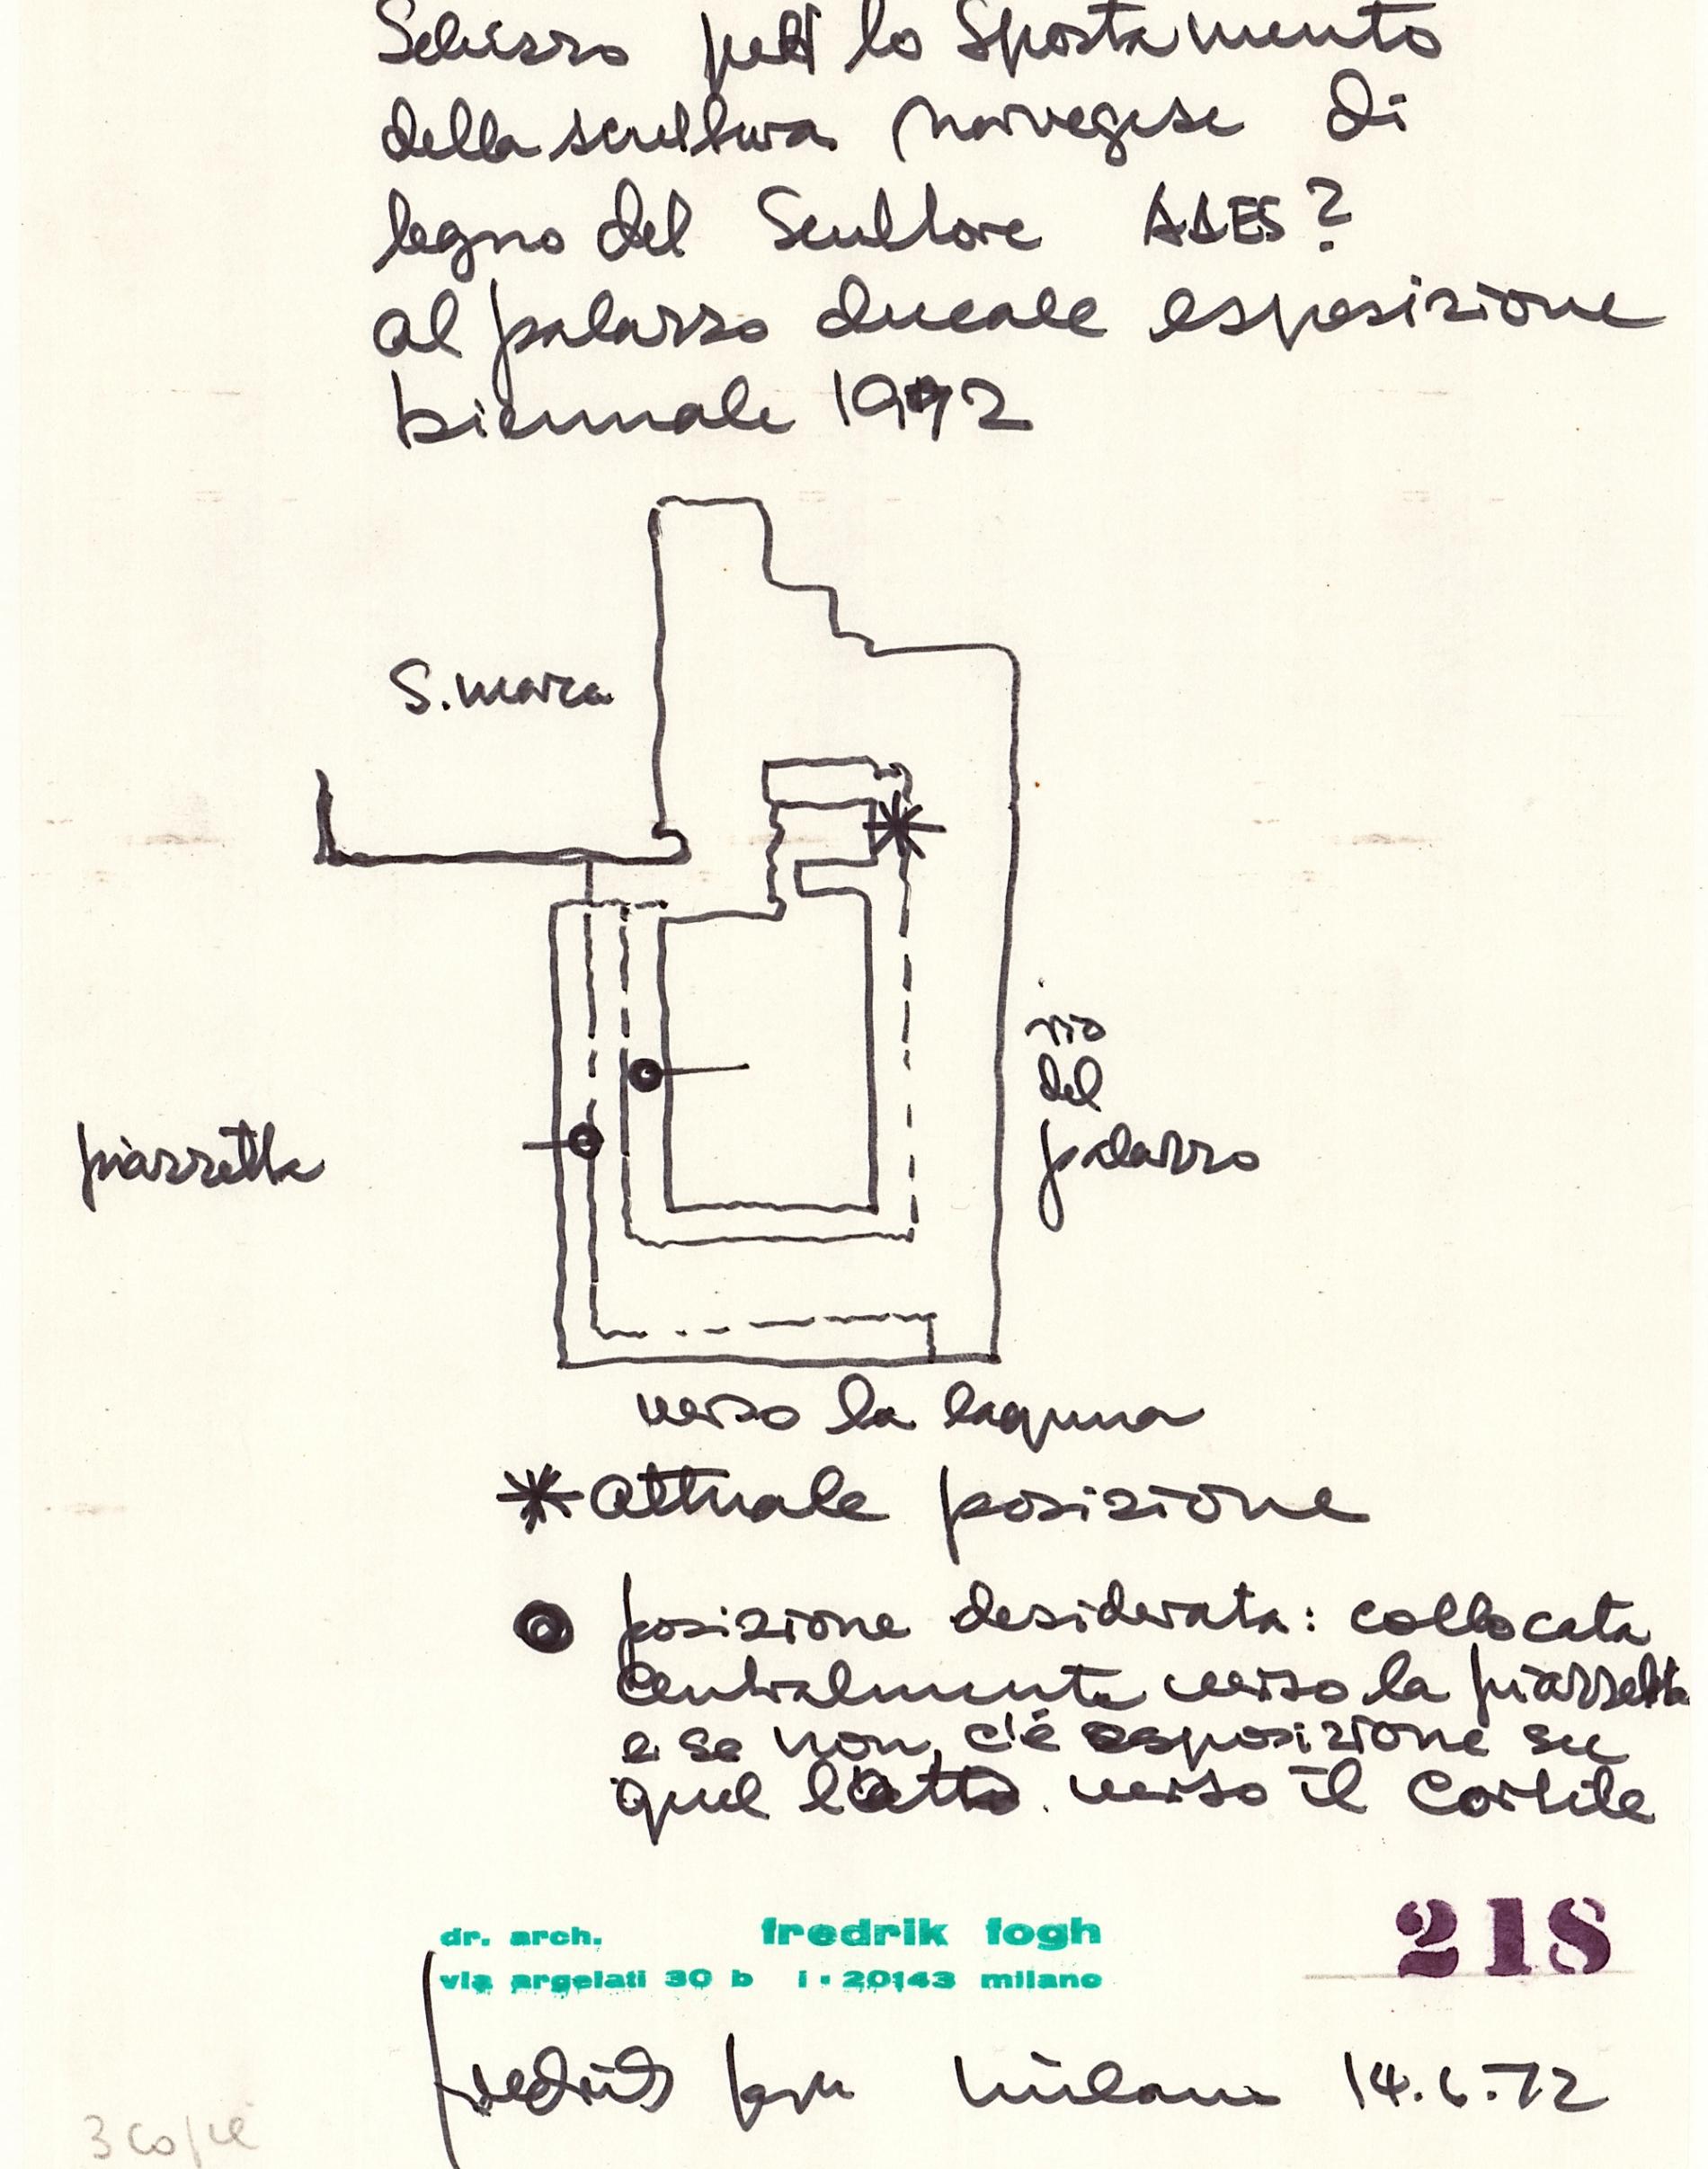 Schizzo per lo Spostamento
della scultura norvegese di
legno del Scultore AAES?
al palazzo ducale esposizione
biennale 1972
S. marco
rio
del
palazzo
piazzetta
verso la laguna
attuale posizione
posizione desiderata: collocata
centralmente verso la piazzetta
e se non c'é esposizione su
quel latto verso il Cortile
dr. arch. fredrik fogh
via argelati 30 b i · 20143 milano
218
Fredrik Fogh Milano 14.6.72
3 copie